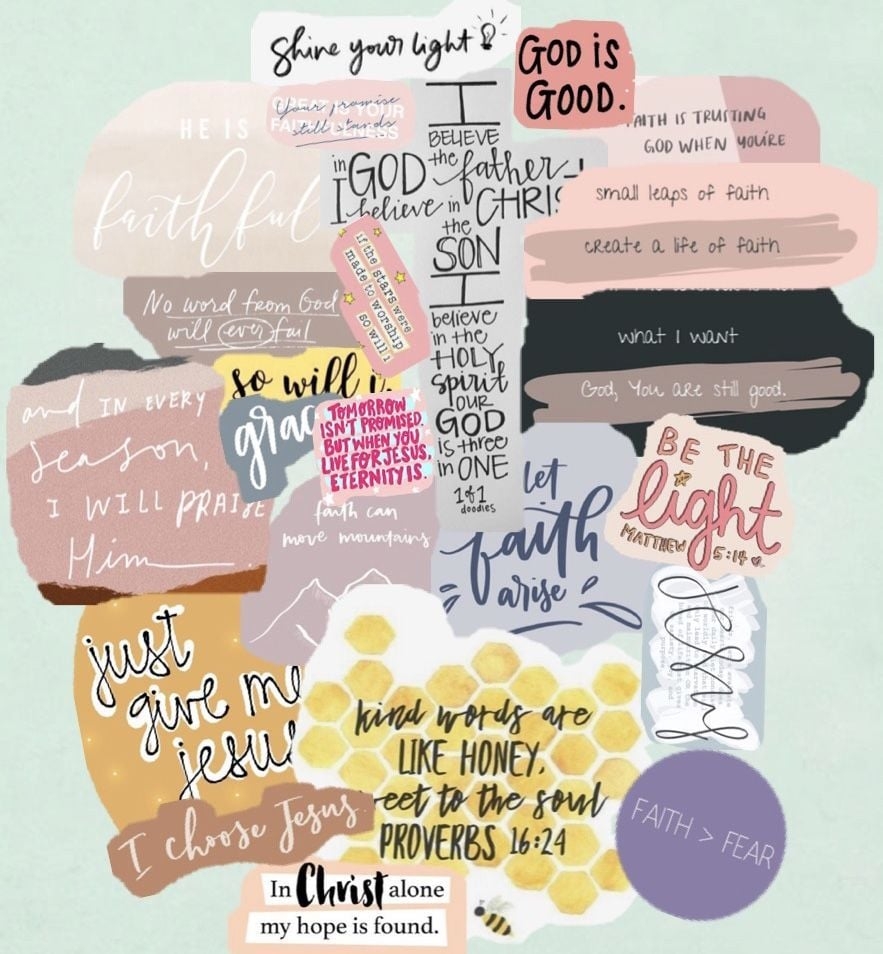 Shine your light
GOD IS
GOOD.
HE IS
faithful
GREAT IS YOUR
FAITHFULNESS
Your promise
still stands
I
BELIEVE
in GOD the father
I believe in CHRIS
the
SON
I
believe
in the
HOLY
Spirit
OUR
GOD
is three
in ONE
1 of 1
doodles
FAITH IS TRUSTING
GOD WHEN YOU'RE
small leaps of faith
create a life of faith
if the stars were
made to worship
so will i
No word from God
will ever fail
what I want
God, You are still good.
and IN EVERY
season,
I WILL PRAISE
Him
so will i.
grac
TOMORROW
ISN'T PROMISED,
BUT WHEN YOU
LIVE FOR JESUS,
ETERNITY IS.
faith can
move mountains
let
faith
arise
BE THE
light
MATTHEW 5:14
Jesus
just
give me
jesus
kind words are
LIKE HONEY,
eet to the soul
PROVERBS 16:24
I choose Jesus
FAITH > FEAR
In Christ alone
my hope is found.